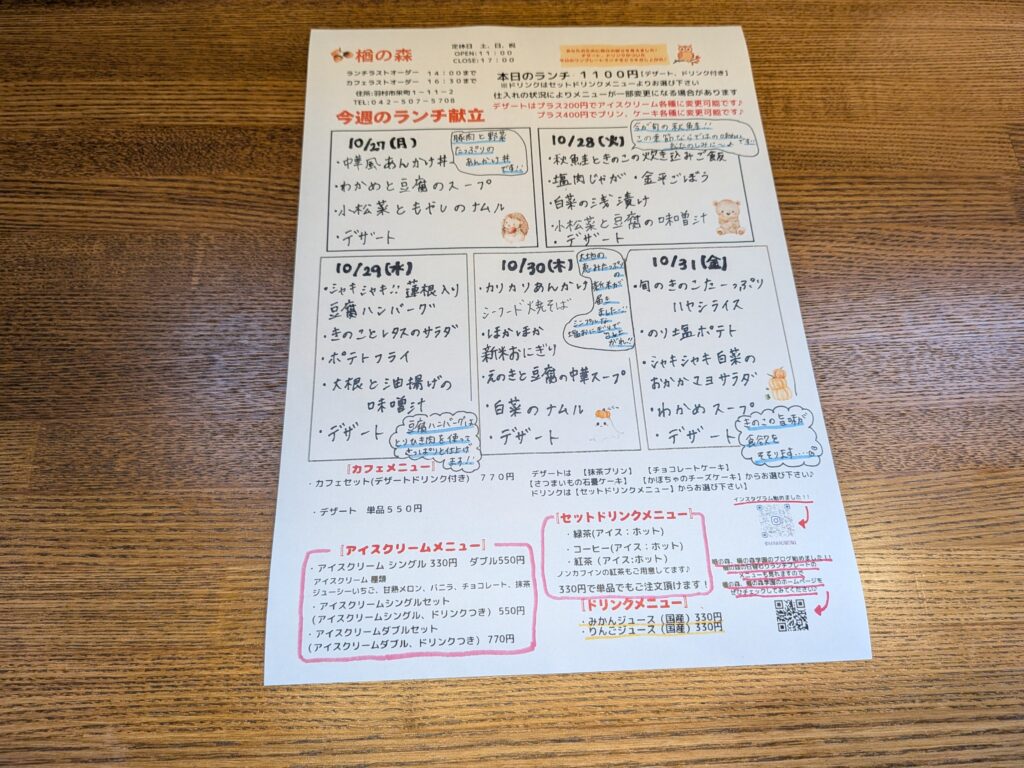 楢の森
定休日 土、日、祝
OPEN:11:00
CLOSE:17:00
ランチラストオーダー 14:00まで
カフェラストオーダー 16:30まで
住所:羽村市栄町1-11-2
TEL:042-507-5708
本日のランチ 1100円【デザート、ドリンク付き】
※ドリンクはセットドリンクメニューよりお選び下さい
仕入れの状況によりメニューが一部変更になる場合があります
デザートはプラス200円でアイスクリーム各種に変更可能です♪
プラス400円でプリン、ケーキ各種に変更可能です♪
今週のランチ献立
10/27(月)
豚肉と野菜
たっぷりの
あんかけ丼
です!!
・中華風あんかけ丼
・わかめと豆腐のスープ
・小松菜ともやしのナムル
・デザート
10/28(火)
今が旬の秋鮭!!
この季節ならではの
・秋鮭ときのこの炊き込みご飯
・塩肉じゃが ・金平ごぼう
・白菜の浅漬け
・小松菜と豆腐の味噌汁
・デザート
10/29(水)
・シャキシャキ!!蓮根入り
豆腐ハンバーグ
・きのことレタスのサラダ
・ポテトフライ
・大根と油揚げの
味噌汁
・デザート
豆腐ハンバーグは
とりひき肉を使って
さっぱりと仕上げ
ます!!
10/30(木)
・カリカリあんかけ
シーフード焼そば
・ほかほか
新米おにぎり
・えのきと豆腐の中華スープ
・白菜のナムル
・デザート
大地の
恵みたっぷり
の
新米が
シンプルな
塩おにぎりで
10/31(金)
・旬のきのこたーっぷり
ハヤシライス
・のり塩ポテト
・シャキシャキ白菜の
おかかマヨサラダ
・わかめスープ
・デザート
きのこの旨味が
食欲を
そそります...
『カフェメニュー』
・カフェセット(デザートドリンク付き) 770円
・デザート 単品550円
デザートは 【抹茶プリン】 【チョコレートケーキ】
【さつまいもの石畳ケーキ】 【かぼちゃのチーズケーキ】からお選び下さい♪
ドリンクは【セットドリンクメニュー】からお選び下さい
『アイスクリームメニュー』
・アイスクリーム シングル 330円 ダブル550円
アイスクリーム 種類
ジューシーいちご、甘熟メロン、バニラ、チョコレート、抹茶
・アイスクリームシングルセット
(アイスクリームシングル、ドリンクつき) 550円
・アイスクリームダブルセット
(アイスクリームダブル、ドリンクつき) 770円
『セットドリンクメニュー』
・緑茶(アイス:ホット)
・コーヒー(アイス:ホット)
・紅茶 (アイス:ホット)
ノンカフェインの紅茶もご用意してます♪
330円で単品でもご注文頂けます!
『ドリンクメニュー』
・みかんジュース (国産) 330円
・りんごジュース (国産) 330円
インスタグラム始めました!!
楢の森、楢の森学園のブログ始めました!!
楢の森の日替わりランチプレートの
メニューも見れますので
楢の森、楢の森学園のホームページを
ぜひチェックしてみてください♪